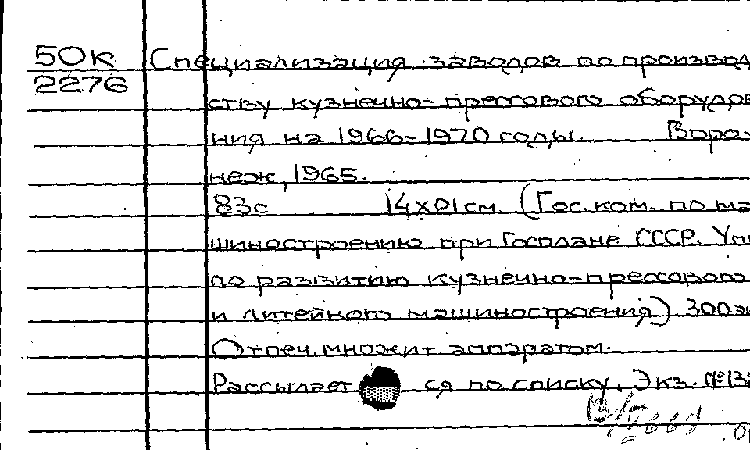 50К Специализация заводов по производ
2276
ству кузнечно-прессового оборудов
ния на 1966-1970 годы. Воро-
неж, 1965.
83с 14х01см. (Гос.ком. по ма
шиностроению при Госплане СССР. Уп
по развитию кузнечно-прессового
и литейного машиностроения) 300э
Отпеч. множит аппаратом.
Рассылает ся по списку. Экз. №13